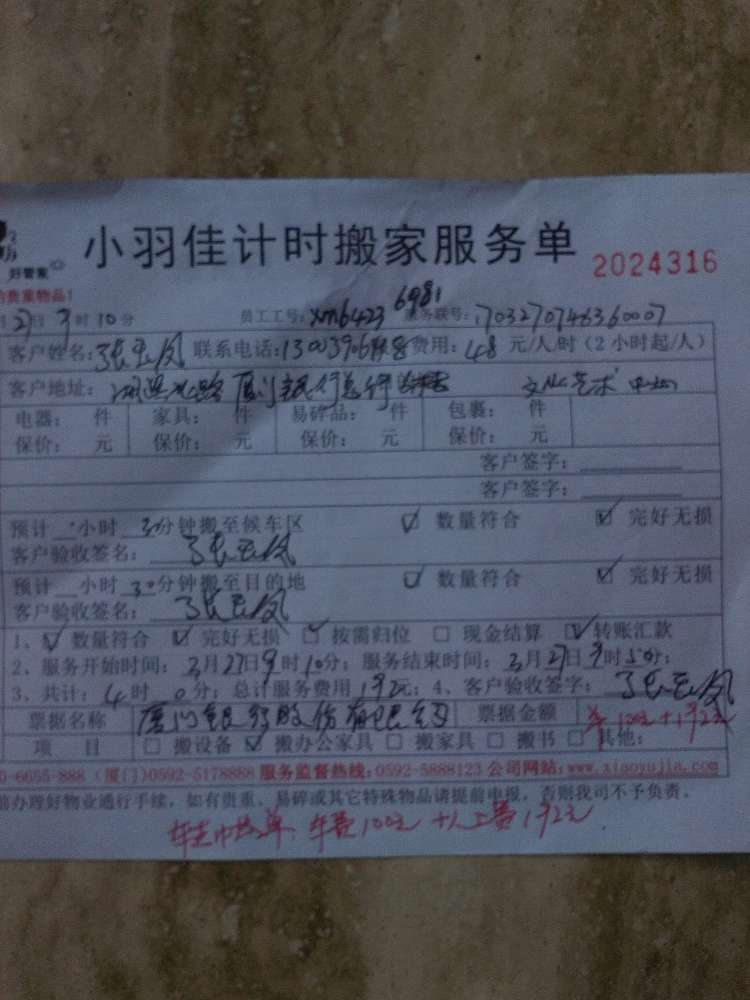 好管家
小羽佳计时搬家服务单 2024316
贵重物品!
27日9时10分 员工工号:xm6423 6981 服务联号:1703270746360007
客户姓名:张玉凤 联系电话:1300396 费用:48元/人/时(2小时起/人)
客户地址:湖滨北路厦门银行总行 文化艺术中心
电器: 件 家具: 件 易碎品: 件 包裹: 件
保价: 元 保价: 元 保价: 元 保价: 元
客户签字:
客户签字:
预计 小时 30分钟搬至候车区 数量符合 完好无损
客户验收签名: 张玉凤
预计 小时 30分钟搬至目的地 数量符合 完好无损
客户验收签名: 张玉凤
1、 数量符合 完好无损 按需归位 现金结算 转账汇款
2、服务开始时间:3月27日9时10分; 服务结束时间:3月27日9时50分;
3、共计:4时0分;总计服务费用192元;4、客户验收签字:张玉凤
票据名称 厦门银行股份有限公司 票据金额 车100元+192元
项目 搬设备 搬办公家具 搬家具 搬书 其他:
0-6655-888(厦门)0592-5178888 服务监督热线:0592-5888123 公司网站:www.xiaoyujia.com
前办理好物业通行手续,如有贵重、易碎或其它特殊物品请提前申报,否则我司不予负责。
单 车费100元+人工费192元